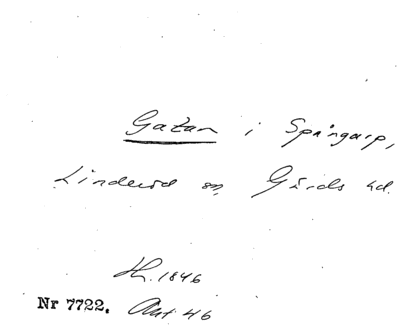 Gatan i Spångarp,
Linderöd sn, Gärds hd.
Hr. 1846
Nr 7722. Akt 46